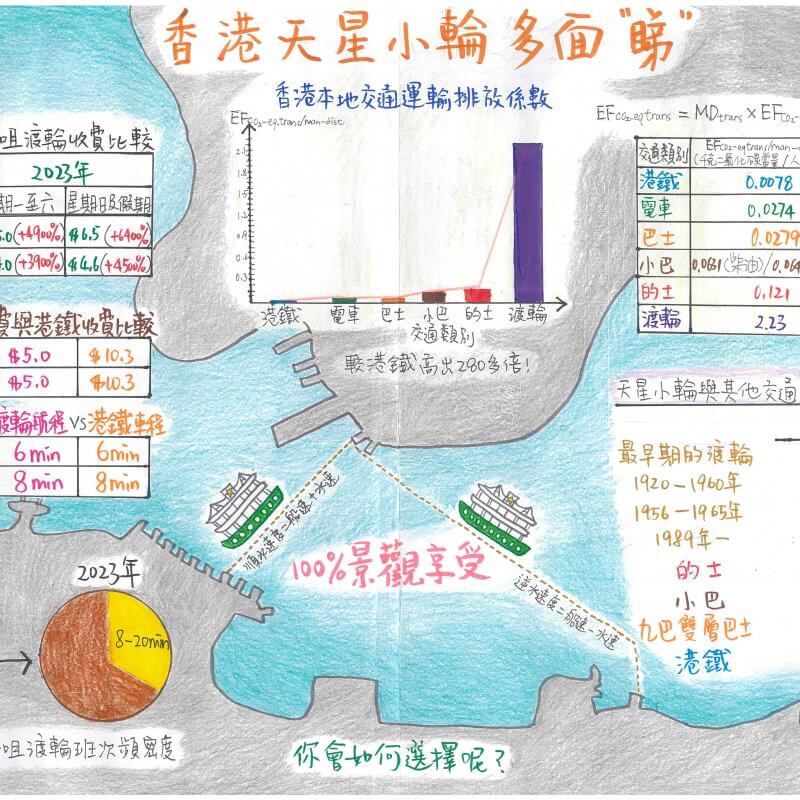 香港天星小輪多面"睇"
香港本地交通運輸排放係數
EFCO2-eq,trans/man-disc
2.1
1.8
1.5
1.2
0.9
0.6
0.3
港鐵 電車 巴士 小巴 的士 渡輪
交通類別
較港鐵高出280多倍!
咀渡輪收費比較
2023年
期一至六 星期日及假期
5.0(+4900%) $6.5(+6400%)
4.0(+3900%) $4.6(+4500%)
費與港鐵收費比較
$5.0 $10.3
$5.0 $10.3
渡輪航程VS港鐵車程
6min 6min
8min 8min
EFCO2-eq,trans = MDtrans × EFCO2-
交通類別 EFCO2-eq,trans/man-
(千克二氧化碳當量/人
港鐵 0.0078
電車 0.0274
巴士 0.0279
小巴 0.0631(柴油)/0.064
的士 0.121
渡輪 2.23
天星小輪與其他交通
最早期的渡輪
1920-1960年
1956-1965年
1989年-
的士
小巴
九巴雙層巴士
港鐵
順水速度=船速+水速
逆水速度=船速-水速
100%景觀享受
2023年
8-20min
咀渡輪班次頻密度
你會如何選擇呢?